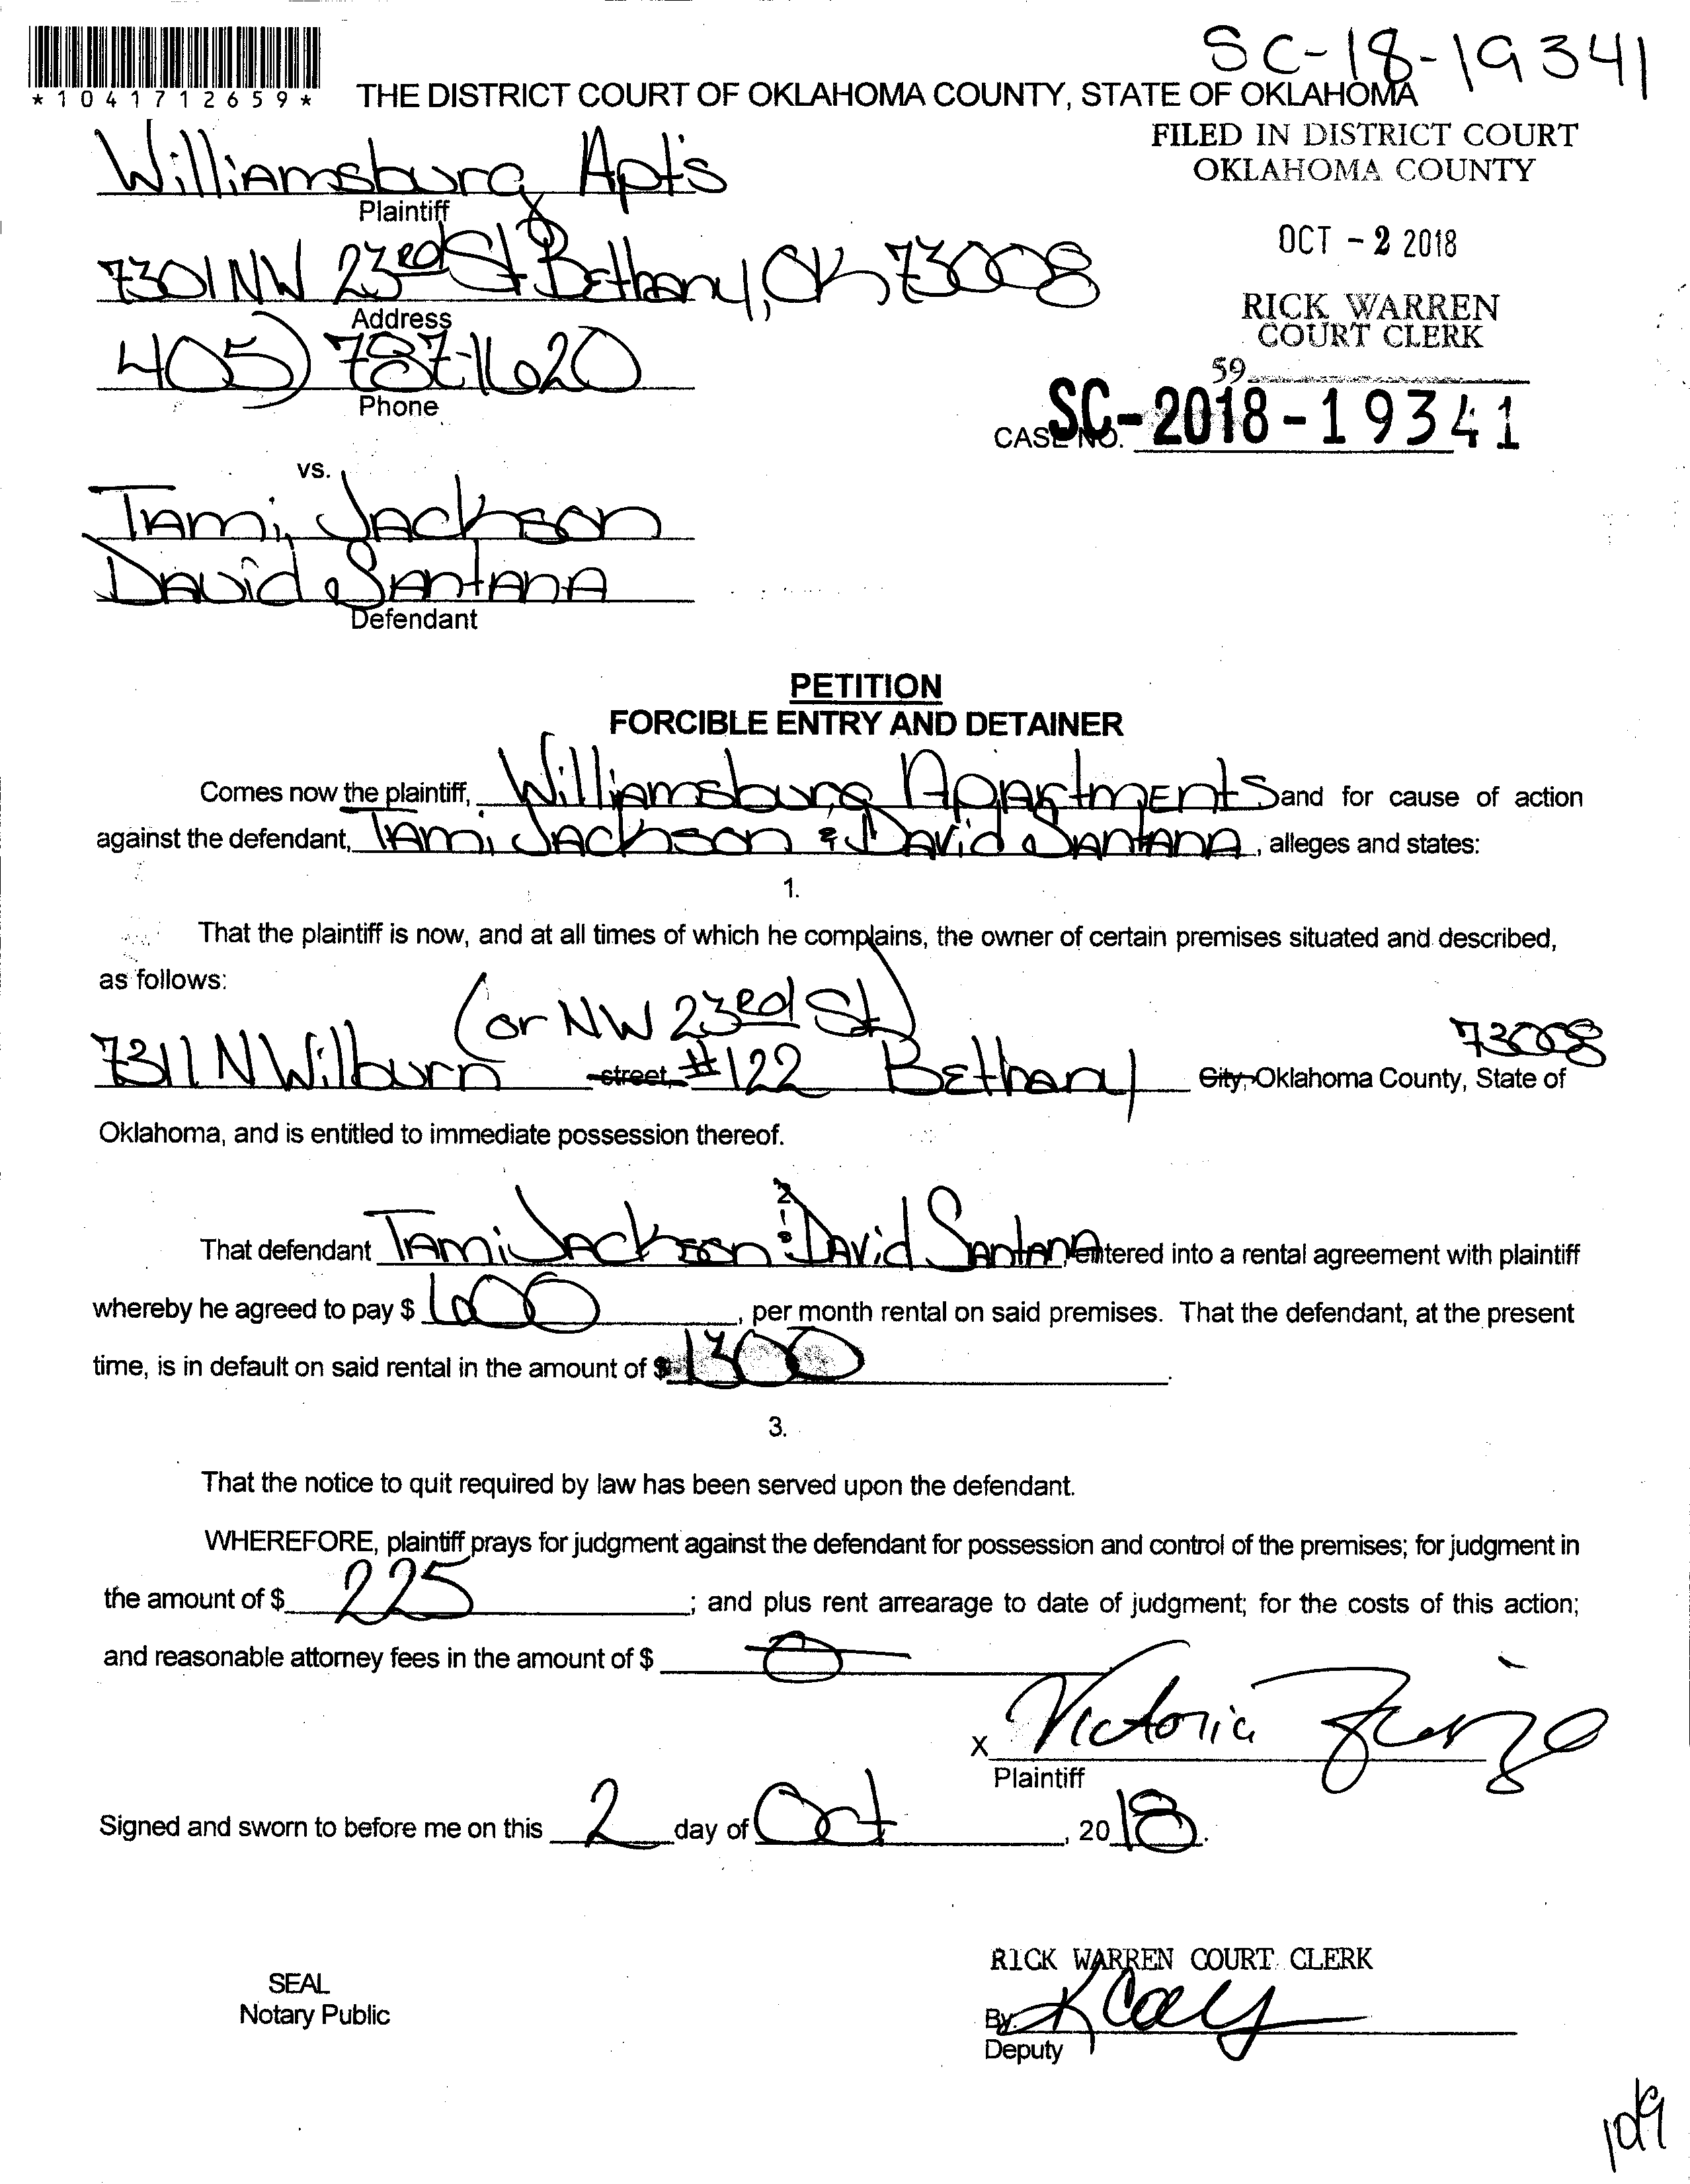 SC-18-19341
*1041712659*
THE DISTRICT COURT OF OKLAHOMA COUNTY, STATE OF OKLAHOMA
FILED IN DISTRICT COURT
OKLAHOMA COUNTY
Williamsburg Apt's
Plaintiff
OCT - 2 2018
7301 NW 23rd St Bethany, OK 73008
Address
RICK WARREN
COURT CLERK
405) 787-1620
Phone
59
CASE NO. SC-2018-19341
vs.
Tami Jackson
David Santana
Defendant
PETITION
FORCIBLE ENTRY AND DETAINER
Comes now the plaintiff, Williamsburg Apartments and for cause of action
against the defendant, Tami Jackson & David Santana, alleges and states:
1.
That the plaintiff is now, and at all times of which he complains, the owner of certain premises situated and described,
as follows:
(or NW 23rd St)
73008
7311 N Wilburn street, #122 Bethany City, Oklahoma County, State of
Oklahoma, and is entitled to immediate possession thereof.
2.
That defendant Tami Jackson & David Santana, entered into a rental agreement with plaintiff
whereby he agreed to pay $ 600, per month rental on said premises. That the defendant, at the present
time, is in default on said rental in the amount of $ 1300.
3.
That the notice to quit required by law has been served upon the defendant.
WHEREFORE, plaintiff prays for judgment against the defendant for possession and control of the premises; for judgment in
the amount of $ 225; and plus rent arrearage to date of judgment; for the costs of this action;
and reasonable attorney fees in the amount of $ 0
X Victoria
Plaintiff
Signed and sworn to before me on this 2 day of Oct, 2018.
RICK WARREN COURT CLERK
SEAL
Notary Public
By
Deputy